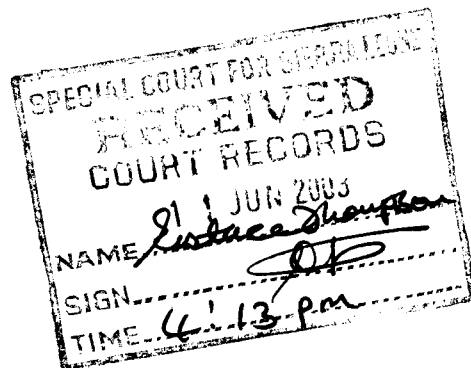 SPECIAL COURT FOR SIERRA LEONE
RECEIVED
COURT RECORDS
11 JUN 2003
NAME Eustace Thompson
SIGN
TIME 4:13 pm